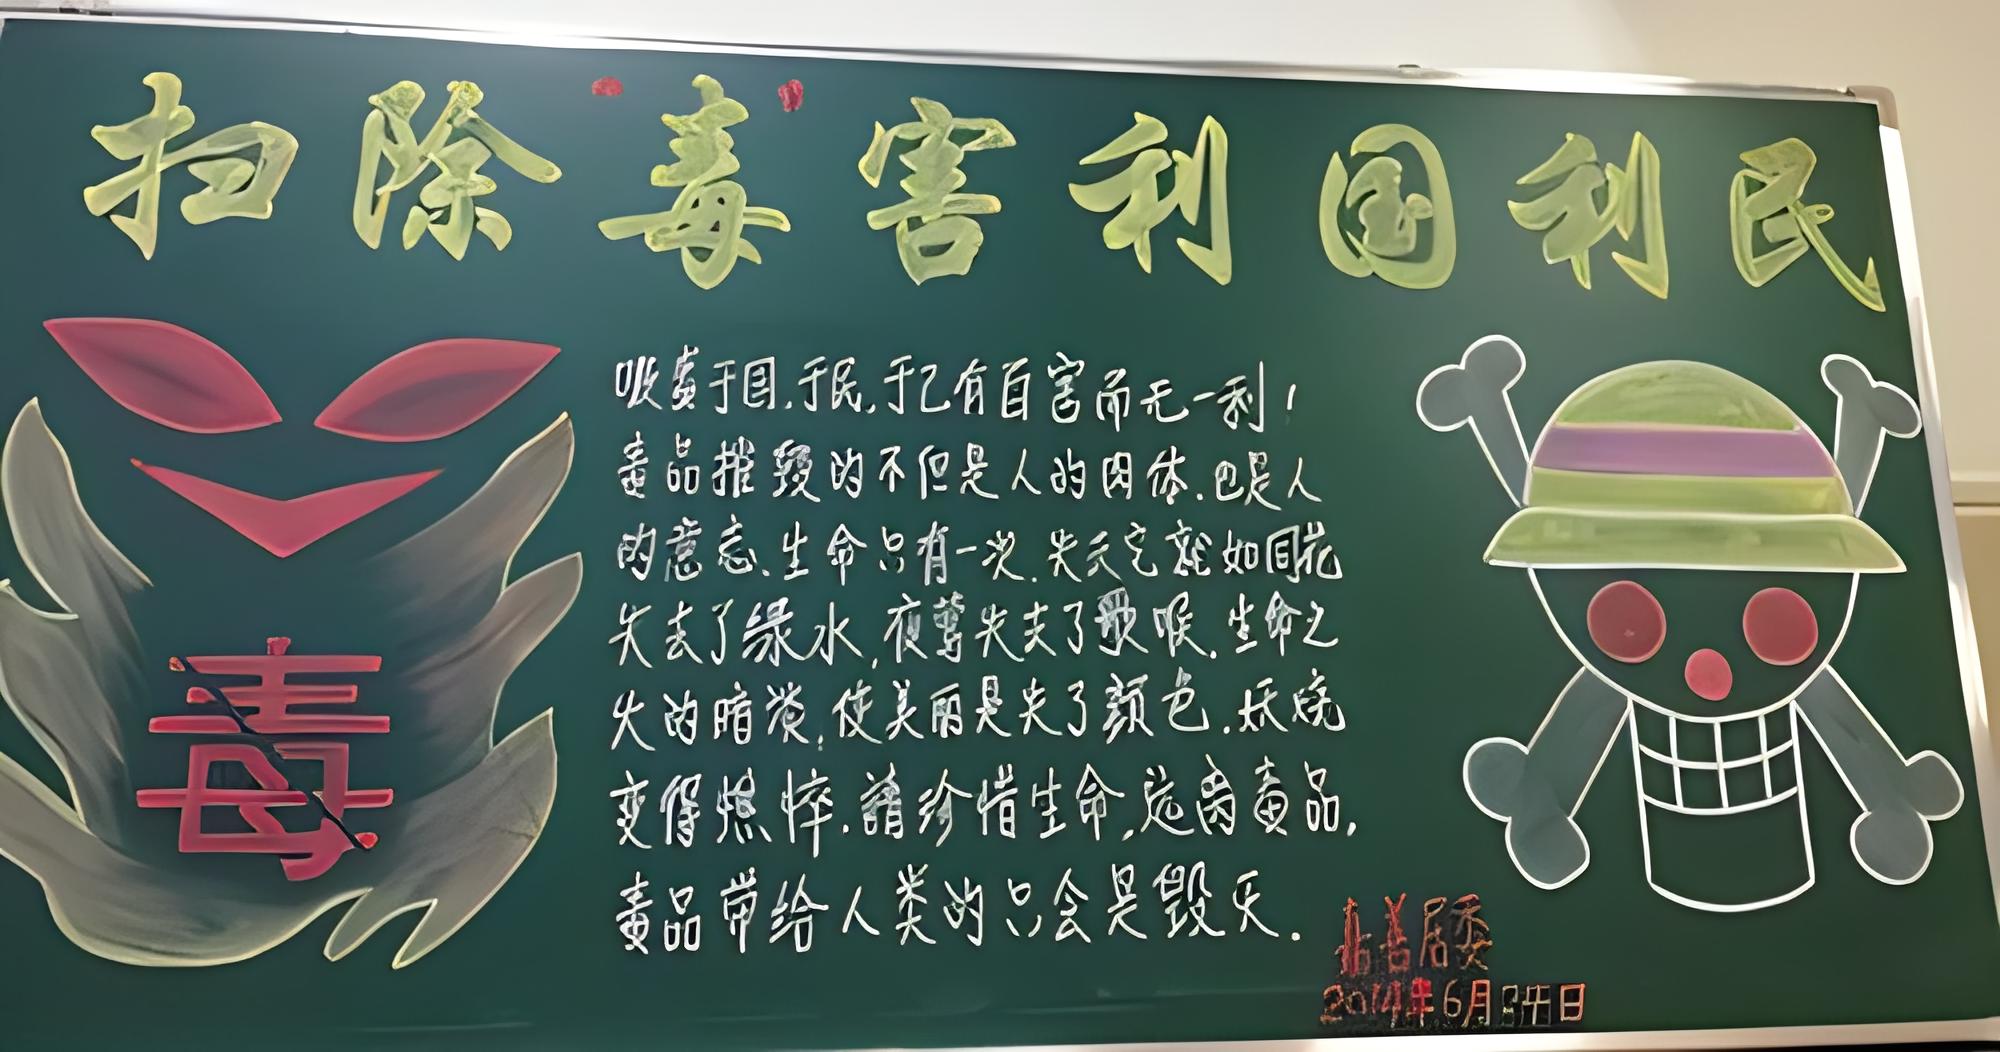 扫除毒害利国利民
毒
吸毒于国.于民.于己有百害而无一利!
毒品摧毁的不但是人的肉体.也是人
的意志、生命只有一次.失去它就如同花
失去了绿水,夜莺失去了歌喉.生命之
火的暗淡,使美丽是失了颜色.妖娆
变得憔悴.請珍惜生命,远离毒品.
毒品带给人类的只会是毁灭.
嘉善居委
2014年6月日